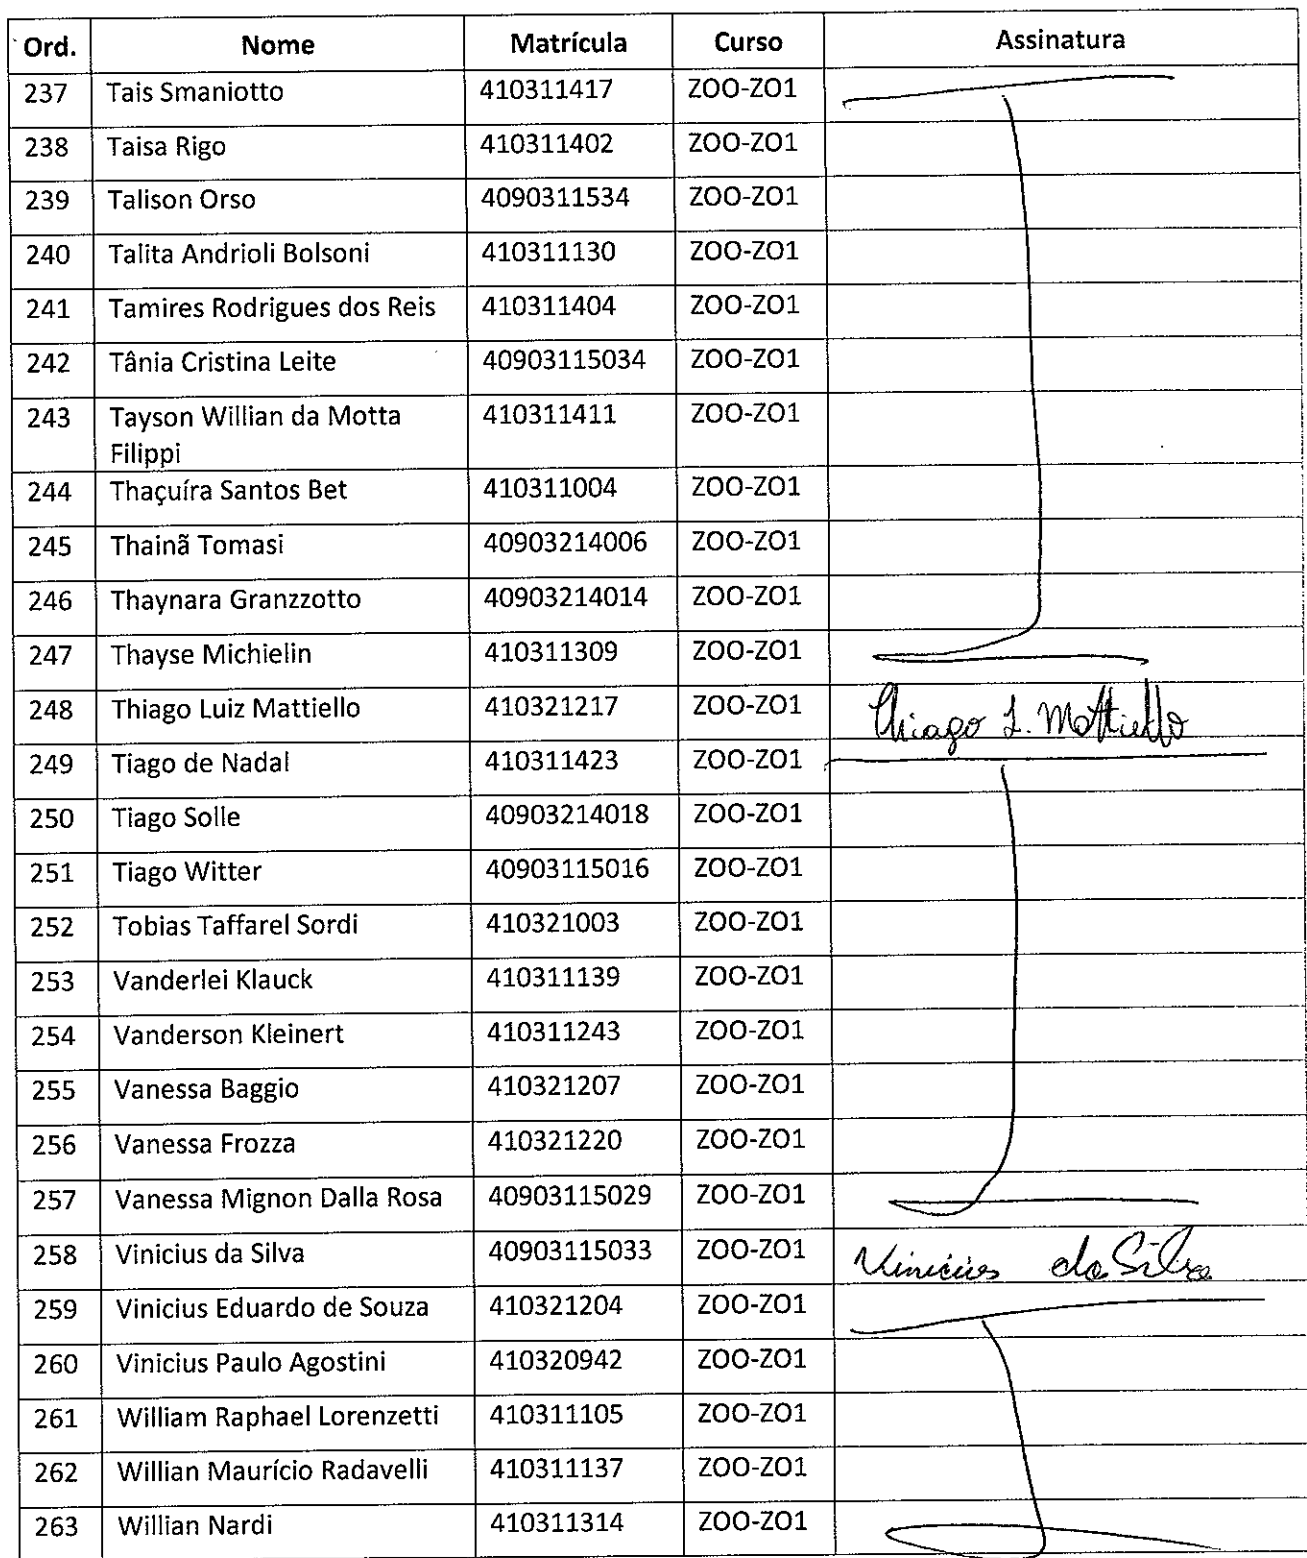 Ord. Nome Matrícula Curso Assinatura
237 Tais Smaniotto 410311417 ZOO-ZO1
238 Taisa Rigo 410311402 ZOO-ZO1
239 Talison Orso 4090311534 ZOO-ZO1
240 Talita Andrioli Bolsoni 410311130 ZOO-ZO1
241 Tamires Rodrigues dos Reis 410311404 ZOO-ZO1
242 Tânia Cristina Leite 40903115034 ZOO-ZO1
243 Tayson Willian da Motta 410311411 ZOO-ZO1
Filippi
244 Thaçuíra Santos Bet 410311004 ZOO-ZO1
245 Thainã Tomasi 40903214006 ZOO-ZO1
246 Thaynara Granzzotto 40903214014 ZOO-ZO1
247 Thayse Michielin 410311309 ZOO-ZO1
248 Thiago Luiz Mattiello 410321217 ZOO-ZO1 Thiago L. Mattiello
249 Tiago de Nadal 410311423 ZOO-ZO1
250 Tiago Solle 40903214018 ZOO-ZO1
251 Tiago Witter 40903115016 ZOO-ZO1
252 Tobias Taffarel Sordi 410321003 ZOO-ZO1
253 Vanderlei Klauck 410311139 ZOO-ZO1
254 Vanderson Kleinert 410311243 ZOO-ZO1
255 Vanessa Baggio 410321207 ZOO-ZO1
256 Vanessa Frozza 410321220 ZOO-ZO1
257 Vanessa Mignon Dalla Rosa 40903115029 ZOO-ZO1
258 Vinicius da Silva 40903115033 ZOO-ZO1 Vinicius da Silva
259 Vinicius Eduardo de Souza 410321204 ZOO-ZO1
260 Vinicius Paulo Agostini 410320942 ZOO-ZO1
261 William Raphael Lorenzetti 410311105 ZOO-ZO1
262 Willian Maurício Radavelli 410311137 ZOO-ZO1
263 Willian Nardi 410311314 ZOO-ZO1